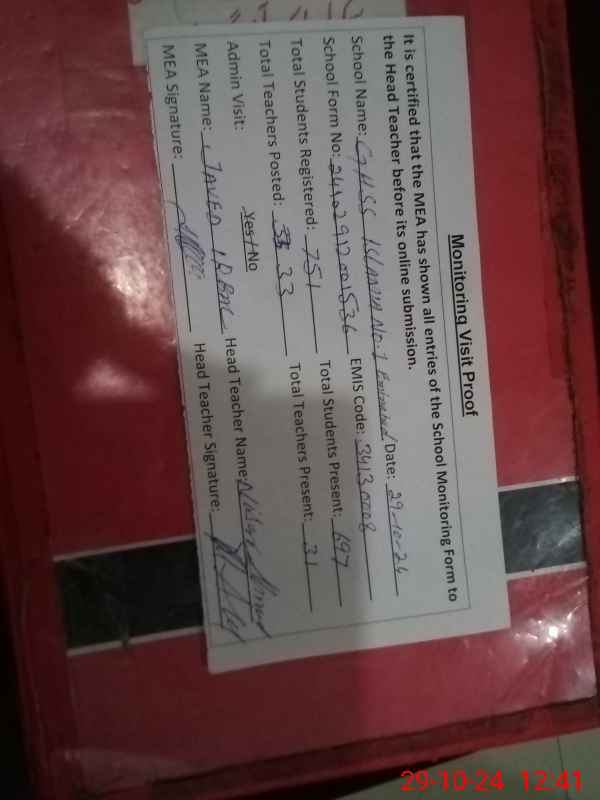 Monitoring Visit Proof
It is certified that the MEA has shown all entries of the School Monitoring Form to
the Head Teacher before its online submission.
School Name: GHSS ISLAMIA No. 1 Date: 29-10-24
School Form No: EMIS Code: 34130008
Total Students Registered: 751 Total Students Present: 697
Total Teachers Posted: 33 Total Teachers Present: 31
Admin Visit: Yes/No
MEA Name: JAVED IQBAL Head Teacher Name:
MEA Signature: Head Teacher Signature:
29-10-24 12:41